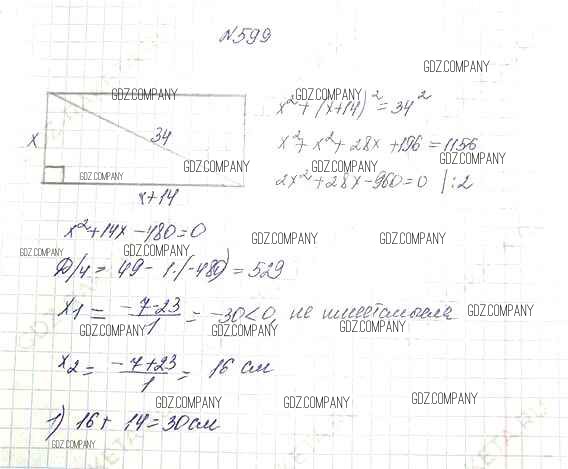 N599
GDZ.COMPANY
GDZ.COMPANY GDZ.COMPANY
x² + (x+14)² = 34²
x
34
x² + x² + 28x + 196 = 1156
GDZ.COMPANY GDZ.COMPANY
GDZ.COMPANY
2x² + 28x - 960 = 0 |:2
x+14
x² + 14x - 480 = 0
GDZ.COMPANY GDZ.COMPANY
GDZ.COMPANY GDZ.COMPANY
Д/4 = 49 - 1·(-480) = 529
x1 = -7-23/1 = -30<0, не имеет смысла
GDZ.COMPANY
GDZ.COMPANY GDZ.COMPANY GDZ.COMPANY
x2 = -7+23/1 = 16 см
GDZ.COMPANY GDZ.COMPANY GDZ.COMPANY
1) 16 + 14 = 30 см
GDZ.COMPANY